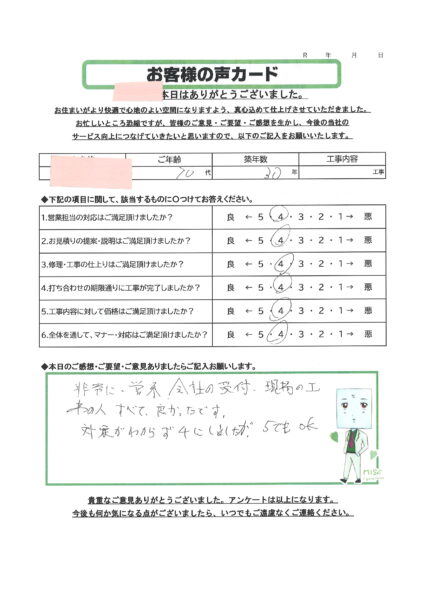 R　年　月　日
お客様の声カード
本日はありがとうございました。
お住まいがより快適で心地のよい空間になりますよう、真心込めて仕上げさせていただきました。
お忙しいところ恐縮ですが、皆様のご意見・ご要望・ご感想を生かし、今後の当社の
サービス向上につなげていきたいと思いますので、以下のご記入をお願いいたします。
ご年齢　築年数　工事内容
70 代　30 年　工事
◆下記の項目に関して、該当するものに〇つけてお答えください。
1.営業担当の対応はご満足頂けましたか？　良　←５・４・３・２・１→　悪
2.お見積りの提案・説明はご満足頂けましたか？　良　←５・４・３・２・１→　悪
3.修理・工事の仕上りはご満足頂けましたか？　良　←５・４・３・２・１→　悪
4.打ち合わせの期限通りに工事が完了しましたか？　良　←５・４・３・２・１→　悪
5.工事内容に対して価格はご満足頂けましたか？　良　←５・４・３・２・１→　悪
6.全体を通して、マナー・対応はご満足頂けましたか？　良　←５・４・３・２・１→　悪
◆本日のご感想・ご要望・ご意見ありましたらご記入お願いします。
非常に・営業 会社の受付・現場の工
人 すべて、良かったです。
対象がわからず4にしましたが、5でも OK
MISE
貴重なご意見ありがとうございました。アンケートは以上になります。
今後も何か気になる点がございましたら、いつでもご遠慮なくご連絡ください。